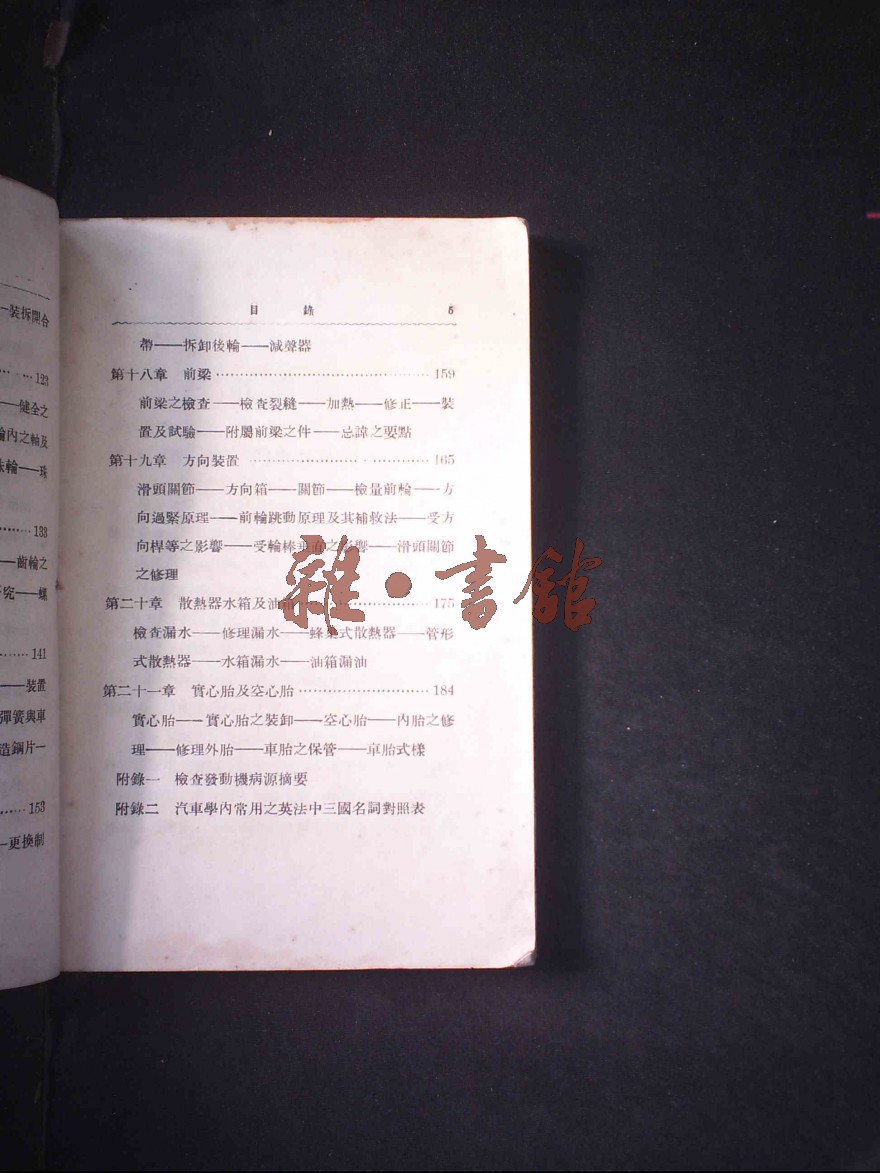 一裝拆開合
123
——健全之
輪內之軸及
珠輪——珠
133
——齒輪之
究——螺
141
——裝置
彈簧與車
造鋼片一
153
一更換制
目錄 5
帶——拆卸後輪——減聲器
第十八章 前梁 159
前梁之檢查——檢查裂縫——加熱——修正——裝
置及試驗——附屬前梁之件——忌諱之要點
第十九章 方向裝置 165
滑頭關節——方向箱——關節——檢量前輪——方
向過緊原理——前輪跳動原理及其補救法——受方
向桿等之影響——受輪棒垂直之影響——滑頭關節
之修理
第二十章 散熱器水箱及油箱 175
檢查漏水——修理漏水——蜂巢式散熱器——管形
式散熱器——水箱漏水——油箱漏油
第二十一章 實心胎及空心胎 184
實心胎——實心胎之裝卸——空心胎——內胎之修
理——修理外胎——車胎之保管——車胎式樣
附錄一 檢查發動機病源摘要
附錄二 汽車學內常用之英法中三國名詞對照表
雜·書館